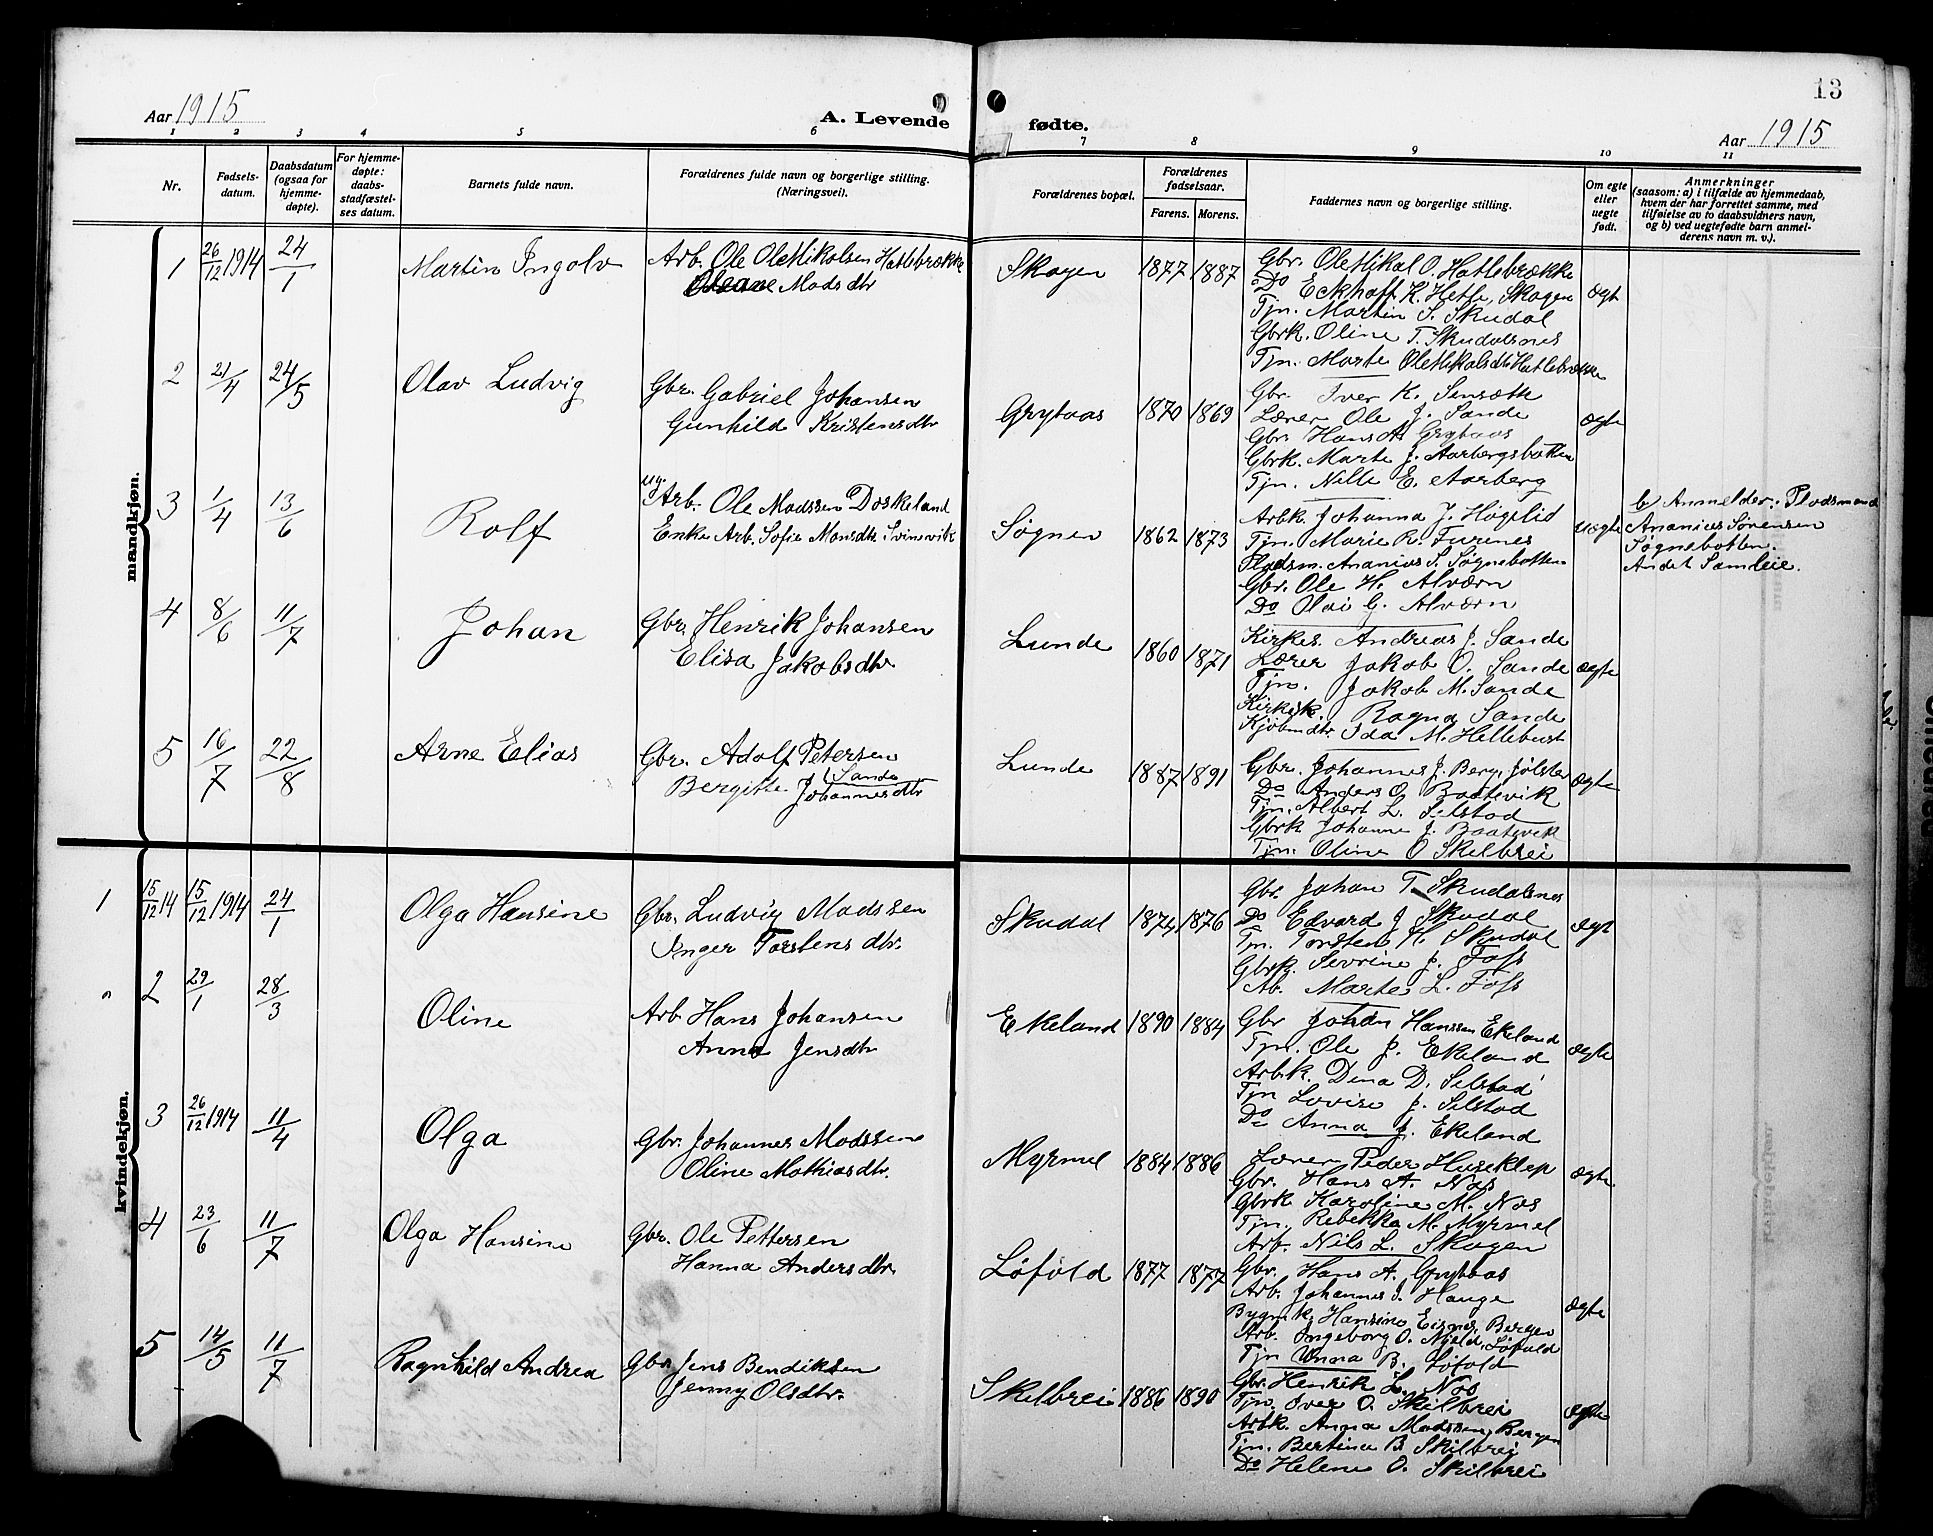 13
Aar 1915
A. Levende
fødte.
Aar 1915
1 2 3 4 5 6 7 8 9 10 11
Nr.
Fødsels-
datum.
Daabsdatum
(ogsaa for
hjemme-
døpte).
For hjemme-
døpte:
daabs-
stadfæstel-
ses datum.
Barnets fulde navn.
Forældrenes fulde navn og borgerlige stilling.
(Næringsvei).
Forældrenes bopæl.
Forældrenes
fødselsaar.
Farens. Morens.
Faddernes navn og borgerlige stilling.
Om egte
eller
uegte
født.
Anmerkninger
(saasom: a) i tilfælde av hjemmedaab,
hvem der har forrettet samme, med
tilføielse av to daabsvidners navn,
og b) ved uegtefødte barn anmel-
derens navn m. v.).
mandkjøn.
1 26/12 1914 24/1 Martin Ingolv
Arb. Ole OleMikalsen Hatlebrække
Oleane Mads dtr
Skogen 1877 1887
Gbr. OleMikal O. Hatlebrække
Do Eckhoff K. Hetle, Skogen
Tjn. Martin S. Skudal
Gbrk. Oline T. Skudalsnes
Tjn. Marte OleMikalsdtr Hatlebrække
ægt
2 21/4 24/5 Olav Ludvig
Gbr. Gabriel Johansen
Gunhild Kristensdtr
Grytaas 1870 1869
Gbr. Iver K. Sensæth
Lærer Ole J. Sande
Gbr. Hans A. Grytaas
Gbrk. Marte J. Aarbergsbotten
Tjn. Nille E. Aarberg
ægte
3 1/4 13/6 Rolf
ug. Arb. Ole Madssen Doskeland
Enke Arb. Sofie Monsdtr. Svinevik
Søgnen 1862 1873
Arbk. Johanna J. Høgelid
Tjn. Marie R. Furenes
Pladsm. Ananias S. Søgnebotten
Gbr. Ole H. Alværn
Do Olai G. Alværn
uægte
b) Anmelder: Pladsmand
Ananias Sørensen
Søgnebotten.
Andet Samleie.
4 8/6 11/7 Johan
Gbr. Henrik Johansen
Elisa Jakobsdtr
Lunde 1860 1871
Kirkes. Andreas J. Sande
Lærer Jakob O. Sande
Tjn. Jakob M. Sande
Kirkesk. Ragna Sande
Kjøbmdtr Ida M. Hellebust
ægte
5 16/7 22/8 Arne Elias
Gbr. Adolf Petersen
Sande
Bergitte Johannesdtr
Lunde 1887 1891
Gbr. Johannes J. Berg, Jølster
Do Anders O. Baatevik
Tjn. Albert L. Selstad
Gbrk Johanne J. Baatevik
Tjn. Oline O Skilbrei
ægte
kvindekjøn.
1 15/12 14 15/12 1914 24/1 Olga Hansine
Gbr. Ludvig Madssen
Inger Torstens dtr.
Skudal 1874 1876
Gbr. Johan T. Skudalsnes
Do Edvard J Skudal
Tjn. Torsten H. Skudal
Gbrk. Sevrine J. Foss
Ab. Marte L. Foss
ægt
2 29/1 28/3 Oline
Arb Hans Johansen
Anna Jensdtr
Ekeland 1890 1884
Gbr Johan Hanssen Ekeland
Tjn. Ole J. Ekeland
Arbk. Dina D. Selstad
Tjn Lovise J. Selstad
Do Anna J. Ekeland
ægte
3 26/12 1914 11/4 Olga
Gbr. Johannes Madssen
Oline Mathiasdtr.
Myrmel 1884 1886
Lærer Peder Huseklep
Gbr. Hans A. Nos
Gbrk Karoline M. Nos
Tjn. Rebekka M. Myrmel
Arb. Nils L. Skogen
ægte
4 23/6 11/7 Olga Hansine
Gbr. Ole Pettersen
Hanna Andersdtr.
Løfold 1877 1877
Gbr. Hans A. Grytaas
Arb. Johannes J. Hauge
Bygmk. Hansine Eisnes, Bergen
Arb. Ingeborg O. Njeld, Løfold
Tjn Unna B. Løfold
ægte
5 14/5 11/7 Ragnhild Andrea
Gbr Jens Bendiksen
Jenny Olsdtr.
Skilbrei 1886 1890
Gbr. Henrik L. Nos
Tjn. Iver O. Skilbrei
Arbk. Anna Madssen, Bergen
Tjn. Bertina B. Skilbrei
Do Helene O. Skilbrei
ægte